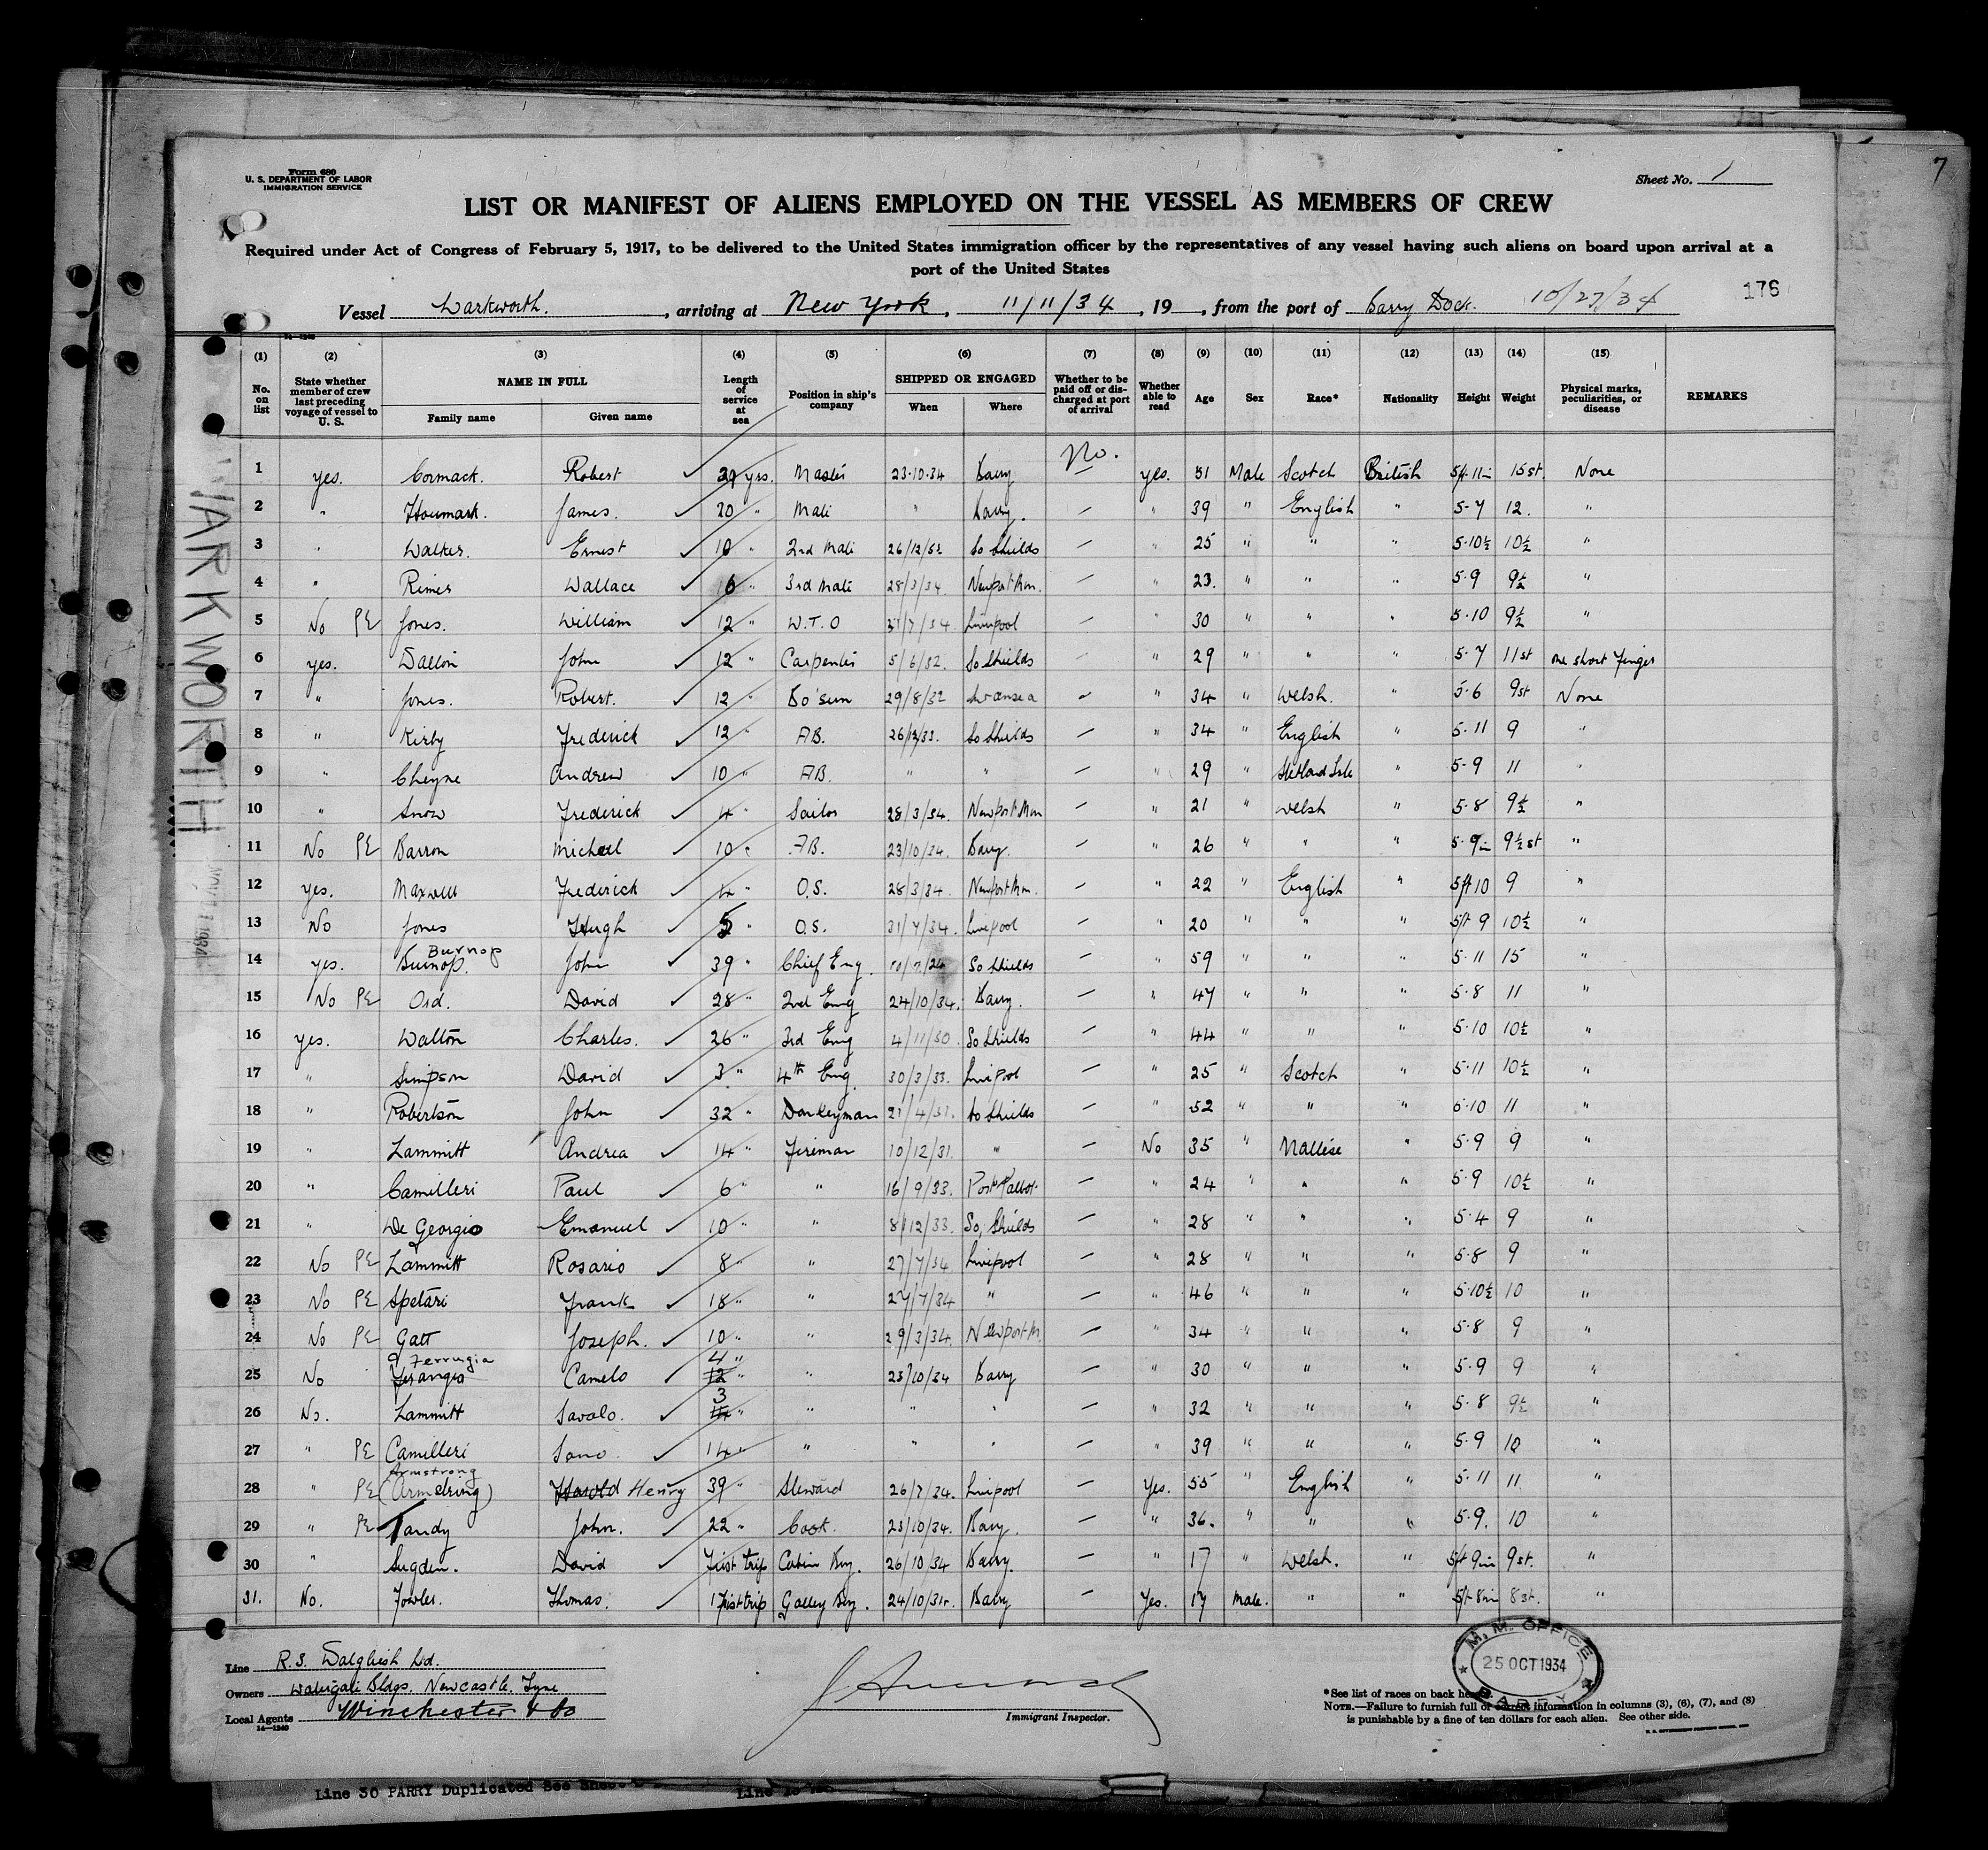 7
Form 680
U. S. DEPARTMENT OF LABOR
IMMIGRATION SERVICE
Sheet No. 1
LIST OR MANIFEST OF ALIENS EMPLOYED ON THE VESSEL AS MEMBERS OF CREW
Required under Act of Congress of February 5, 1917, to be delivered to the United States immigration officer by the representatives of any vessel having such aliens on board upon arrival at a
port of the United States
176
Vessel Warkworth. , arriving at New York , 11/11/34 , 19 , from the port of Barry Dock. 10/27/34
(1) (2) (3) (4) (5) (6) (7) (8) (9) (10) (11) (12) (13) (14) (15)
No. on list State whether member of crew last preceding voyage of vessel to U. S. NAME IN FULL Family name Given name Length of service at sea Position in ship's company SHIPPED OR ENGAGED When Where Whether to be paid off or discharged at port of arrival Whether able to read Age Sex Race* Nationality Height Weight Physical marks, peculiarities, or disease REMARKS
1 yes. Cormack. Robert yrs. Master 23.10.34 Barry No. yes. 51 Male Scotch British 5ft.11in 15st. None
2 " James. 20 " Mate " Barry. — " 39 " English " 5-7 12. "
3 " Walker. Ernest 10 " 2nd Mate 26/12/32 So Shields — " 25 " " " 5.10½ 10½ "
4 " Rimer Wallace 6 " 3rd Mate 28/3/34 Newport Mon. — " 23. " " " 5.9 9½ "
5 No PE Jones. William 12 " W.T.O 31/7/34. Liverpool — " 30 " " " 5.10 9½ "
6 yes. Dalton John 12 " Carpenter 5/6/32. So Shields — " 29 " " " 5.7 11st one short finger
7 " Jones. Robert. 12 " Bo'sun 29/8/32 Swansea — " 34 " Welsh. " 5.6 9st None
8 " Kirby Frederick 12 " AB. 26/12/33. So Shields — " 34 " English " 5.11 9 "
9 " Cheyne Andrew 10 " AB. " " — " 29 " Shetland Isle " 5-9 11 "
10 " Snow Frederick 4 " Sailor 28/3/34. Newport Mon — " 21 " Welsh " 5.8 9½ "
11 No PE Barron Michael 10 " AB. 23/10/34. Barry. — " 26 " " " 5.9in 9½st "
12 yes. Maxwell Frederick 4 " O.S. 28/3/34. Newport Mon. — " 22 " English " 5ft10 9 "
13 No Jones Hugh 5 " O.S. 31/7/34. Liverpool — " 20 " " " 5ft 9 10½ "
14 yes. Burnop Burnop. John 39 " Chief Eng. So Shields — " 59 " " " 5.11 15 "
15 No PE Ord. David 28 " 2nd Eng 24/10/34. Barry. — " 47 " " " 5.8 11 "
16 yes. Walton Charles. 26 " 3rd Eng 4/11/30. So Shields — " 44 " " " 5.10 10½ "
17 " Simpson David 3 " 4th Eng 30/3/33. Liverpool — " 25 " Scotch " 5.11 10½ "
18 " Robertson John 32 " Donkeyman 21/4/31. So Shields — " 52 " " " 5.10 11 "
19 " Lammitt Andrea 14 " Fireman 10/12/31. " — No 35 " Maltese " 5.9 9 "
20 " Camilleri Paul 6 " " 16/9/33. Port Talbot. — " 24 " " " 5.9 10½ "
21 " De Georgio Emanuel 10 " " 8/12/33. So. Shields — " 28 " " " 5.4 9 "
22 No PE Lammitt Rosario 8 " " 27/7/34 Liverpool — " 28 " " " 5.8 9 "
23 No PE Spetari Frank 18 " " 27/7/34 " — " 46 " " " 5.10½ 10 "
24 No PE Gatt Joseph. 10 " " 29/3/34. Newport M. — " 34 " " " 5.8 9 "
25 No Ferrugia Camelo 4 " 12 " " 23/10/34 Barry — " 30 " " " 5.9 9 "
26 No. Lammitt Savalo. 3 14 " " " " — " 32 " " " 5.8 9½ "
27 " PE Camilleri Sano. 14 " " " " — " 39 " " " 5.9 10 "
28 " PE Armstrong (Armstring) Harold Henry 39 " Steward 26/7/34. Liverpool — Yes. 55 " English " 5.11 11 "
29 " PE Tandy John. 22 " Cook. 23/10/34. Barry. — " 36. " " " 5.9. 10 "
30 " Sugden. David First trip Cabin Boy. 26/10/34 Barry. — " 17 " Welsh. " 5ft 9in 9st. "
31. No. Fowler. Thomas. First trip Galley Boy. 24/10/34. Barry — Yes. 17 Male. " " 5ft 8in 8st. "
WARKWORTH
NOV 11 1934
Line R.S. Dalgliesh Ltd.
Owners Watergate Bldgs. Newcastle. Tyne
Local Agents Winchester & Co
14—1240
Immigrant Inspector.
M. M. OFFICE
25 OCT 1934
BARRY
*See list of races on back hereof.
NOTE.—Failure to furnish full or correct information in columns (3), (6), (7), and (8)
is punishable by a fine of ten dollars for each alien. See other side.
Line 30 PARRY Duplicated See Sheet